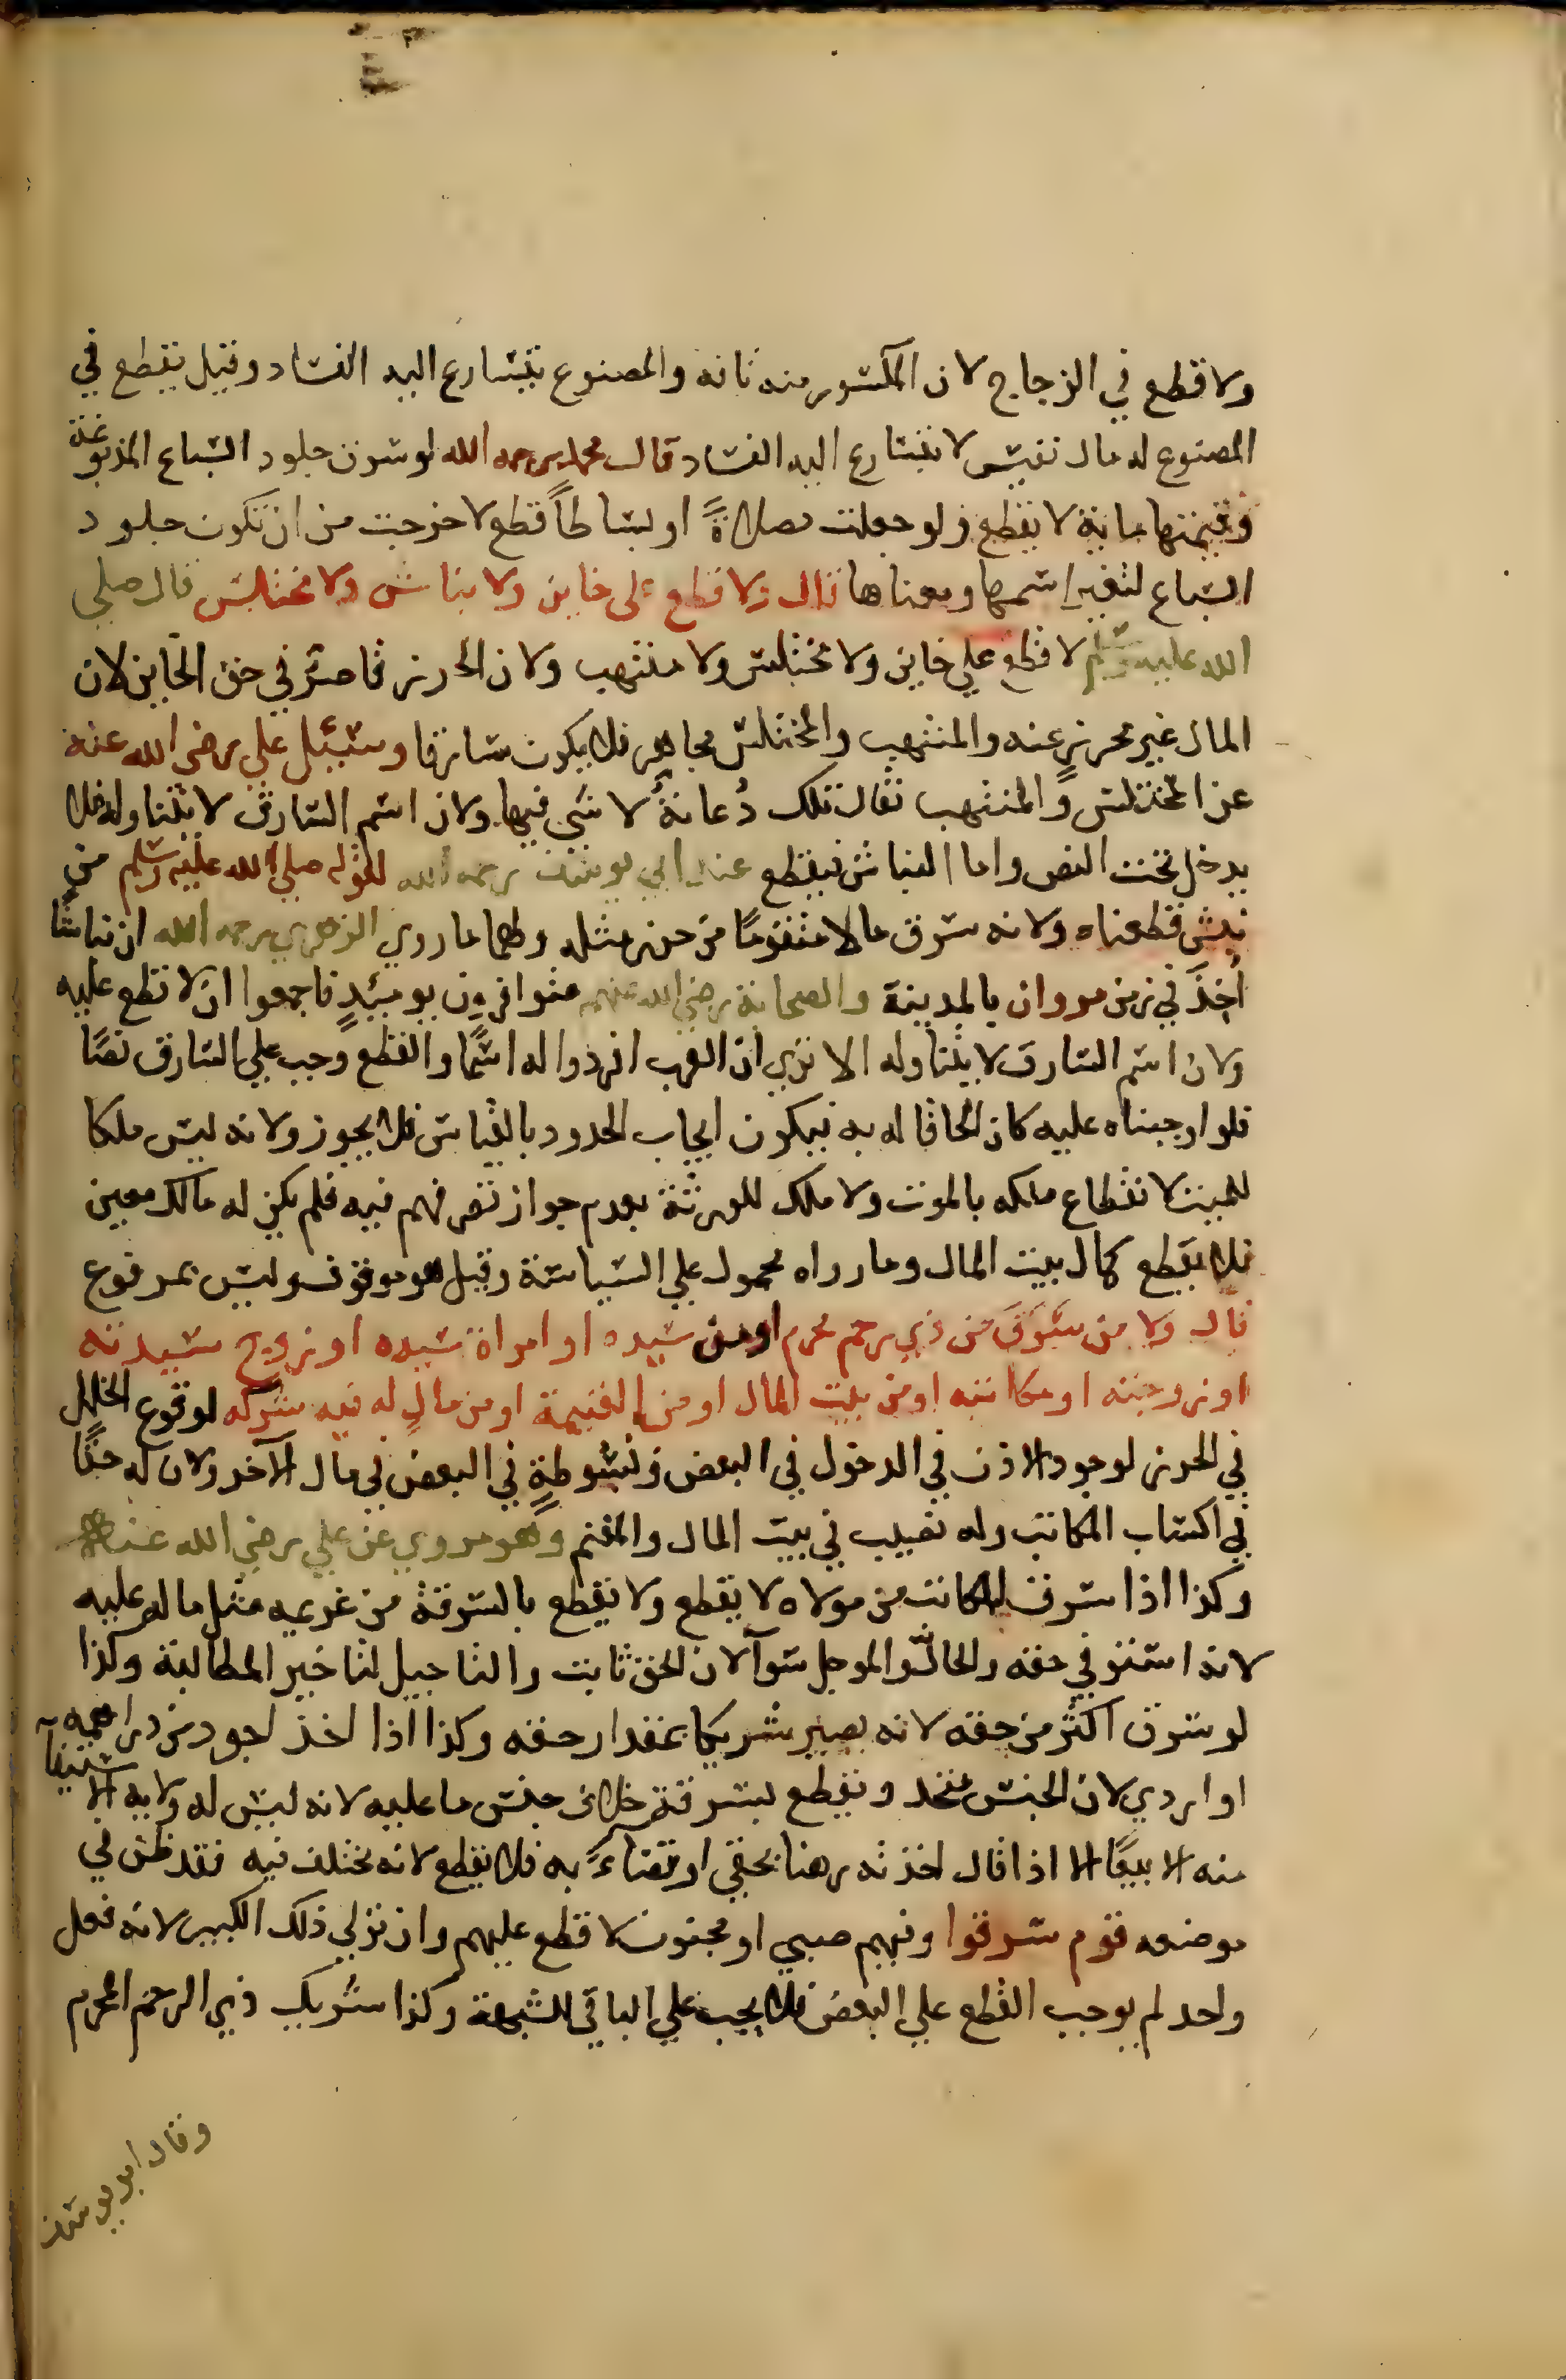 ولا قطع في الزجاج لان المكسور منه تافه والمصنوع يتسارع اليه الفساد وقيل يقطع في
المصنوع له مال نفيس لا يتسارع اليه الفساد قال محمد رحمه الله لو سرق جلود السباع المدبوغة
وقيمتها ماية لا يقطع ولو جعلت مصلاةً او بساطاً قطع لا خرجت من ان تكون جلود
السباع لتغير اسمها ومعناها قال ولا قطع على خاين ولا نباش ولا مختلس قال صلي
الله عليه وسلم لا قطع علي خاين ولا مختلس ولا منتهب ولان الحرز قاصر في حق الخاين لان
المال غير محرز عنه والمنتهب والمختلس مجاهر فلا يكون سارقا وسيئل علي رضي الله عنه
عن المختلس والمنتهب فقال تلك دُعابةٌ لا شي فيها ولان اسم السارق لا يتناوله فلا
يدخل تحت النص واما النباش فيقطع عند ابي يوسف رحمه الله لقوله صلي الله عليه وسلم من
نبش قطعناه ولانه سرق مالا متقومًا من حرز مثله ولهما ما روي الزهري رحمه الله ان نباشا
اُخِذَ في زمن مروان بالمدينة والصحابة رضي الله عنهم متوافرون يوميئذٍ فاجمعوا ان لا قطع عليه
ولان اسم السارق لا يتناوله الا تري ان العرب افردوا له اسمًا والقطع وجب علي السارق نصًا
فلو اوجبناه عليه كان الحاقا له به فيكون ايجاب الحدود بالقياس فلا يجوز ولانه ليس ملكا
للميت لانقطاع ملكه بالموت ولا ملك للورثة بعدم جواز تصرفهم فيه فلم يكن له مالك معين
فلا يقطع كمال بيت المال وما رواه محمول علي السياسة وقيل هو موقوف وليس بمرفوع
قال ولا من سَرَقَ من ذي رحم محرم او من سيده او امراة سيده او زوج سيدته
او زوجته او مكاتبه او من بيت المال او من الغنيمة او من مالٍ له فيه شركه لوقوع الخلل
في الحرز لوجود الاذن في الدخول في البعض وبسُوطةٍ في البعض في مال الآخر ولان له حقًا
في اكتساب المكاتب وله نصيب في بيت المال والمغنم وهو مروي عن علي رضي الله عنه
وكذا اذا سرق المكاتب من مولاه لا يقطع ولا يقطع بالسرقة من غريمه مثل ماله عليه
لانه استوفي حقه والحالّ والموجل سوآ لان الحق ثابت والتاجيل لتاخير المطالبة وكذا
لو سرق اكثر من حقه لانه يصير شريكا بمقدار حقه وكذا اذا اخذ اجود من دراهمه
او اردي لان الجنس متحد ويقطع بسرقة خلاف جنس ما عليه لانه ليس له ولاية الاستيفآ
منه الا بيعًا الا اذا قال اخذته رهنا بحقي او قضاءً به فلا يقطع لانه مختلف فيه فقد ظن في
موضعه قوم سرقوا وفيهم صبي او مجنون لا قطع عليهم وان تولي ذلك الكبير لانه فعل
واحد لم يوجب القطع علي البعض فلا يجب علي الباقي للشبهة وكذا شريك ذي الرحم المحرم
وقال ابو يوسف